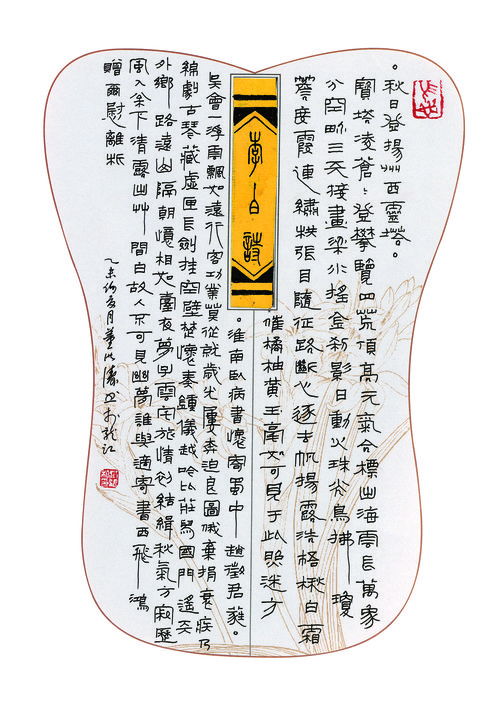 。秋日登揚州西靈塔。
寶塔凌蒼〻登攀覽四荒頂高元氣合標出海雲長萬象
分空界三天接畫梁水搖金刹影日動火珠光鳥拂瓊
簷度霞連繡栱張目隨征路斷心逐去帆揚露浩梧楸白霜
催橘柚黃玉毫如可見于此照迷方
李白詩
。淮南臥病書懷寄蜀中趙徵君蕤。
吳會一浮雲飄如遠行客功業莫從就歲光屢奔迫良圖俄棄捐衰疾乃
綿劇古琴藏虛匣長劍挂空壁楚懷奏鍾儀越吟比莊舄國門遙天
外鄉路遠山隔朝憶相如臺夜夢子雲宅旅情初結緝秋氣方寂歷
風入松下清露出艸間白故人不可見幽夢誰與適寄書西飛鴻
贈爾慰離析
乙未仲夏月董